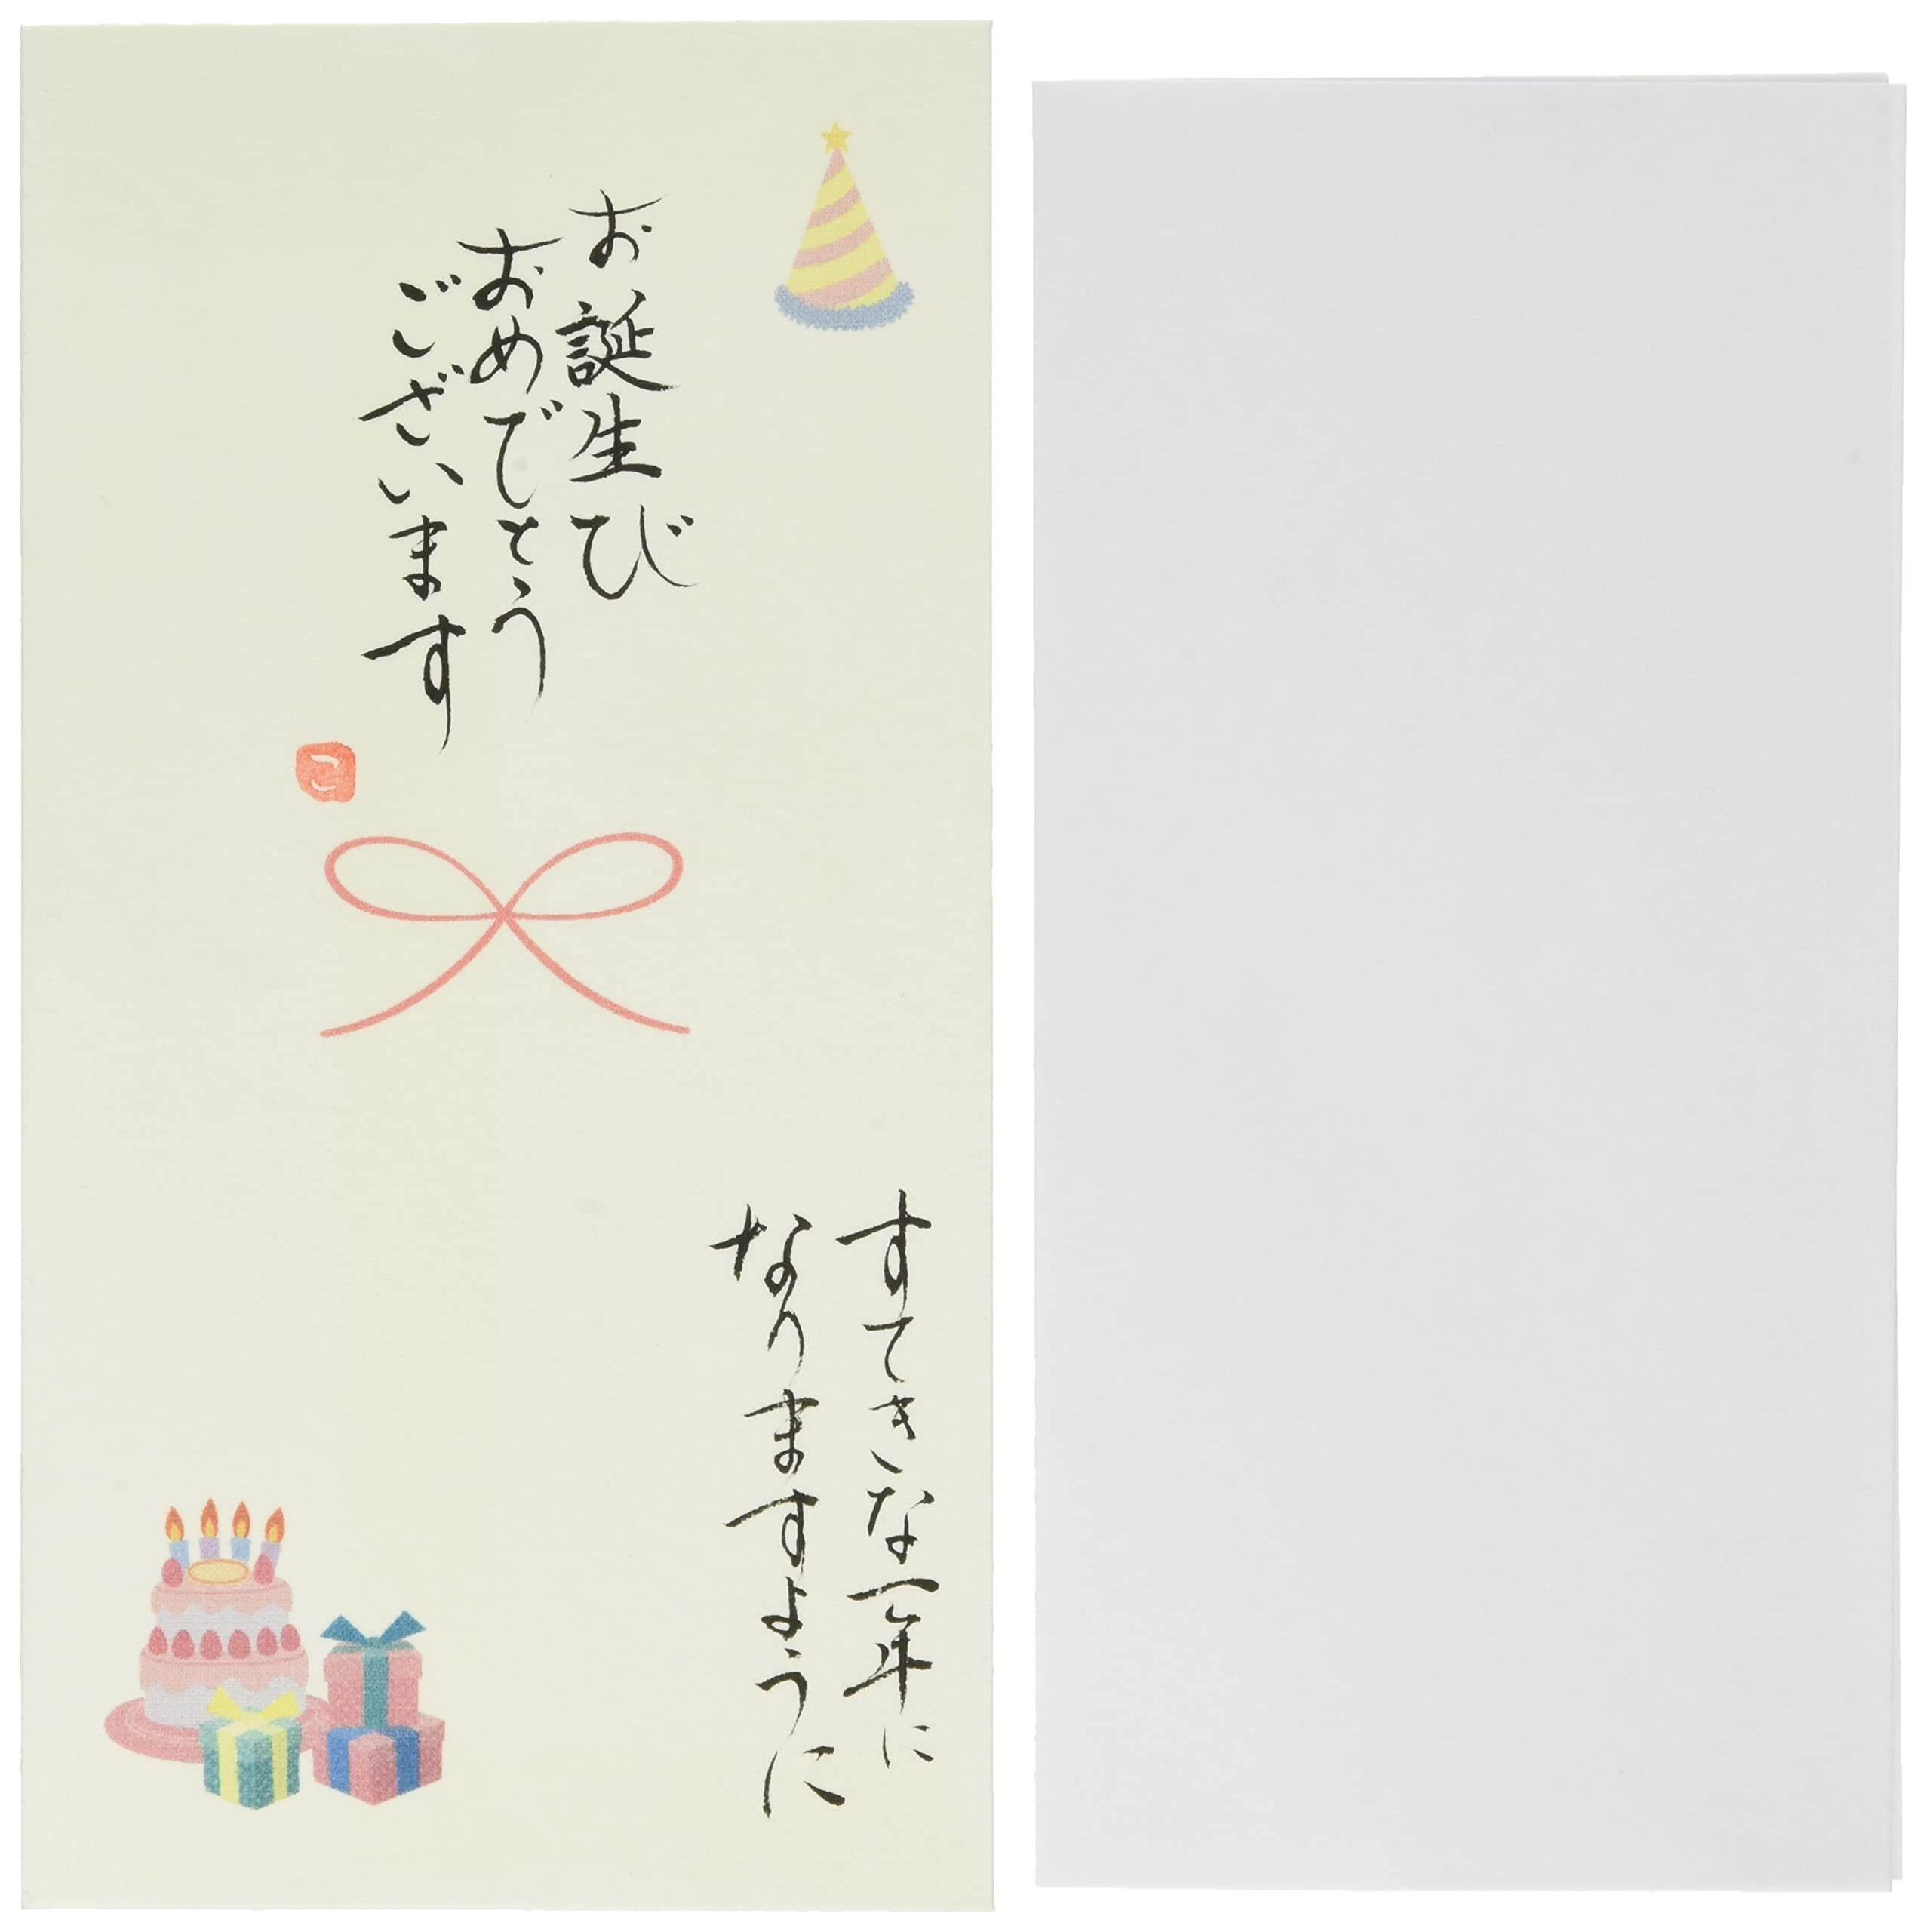 お誕生び
おめでとう
ございます
こ
すてきな一年に
なりますように